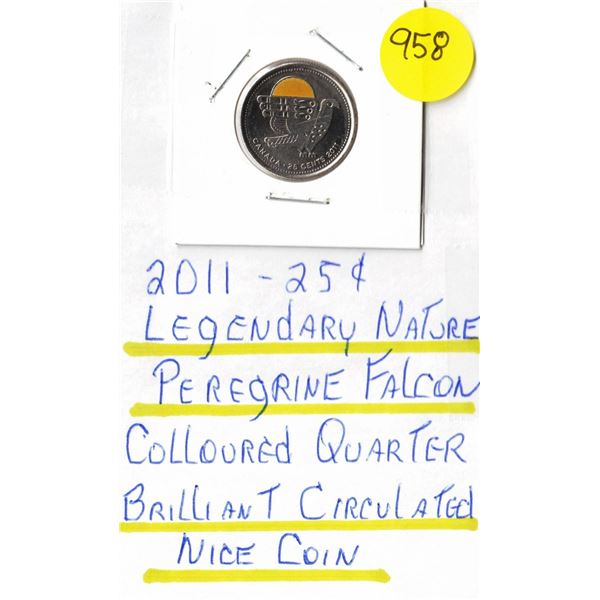 958
CANADA • 25 CENTS 2011
2011 - 25¢
LEGENDARY NATURE
PEREGRINE FALCON
COLLOURED QUARTER
BRILLIANT CIRCULATED
NICE COIN